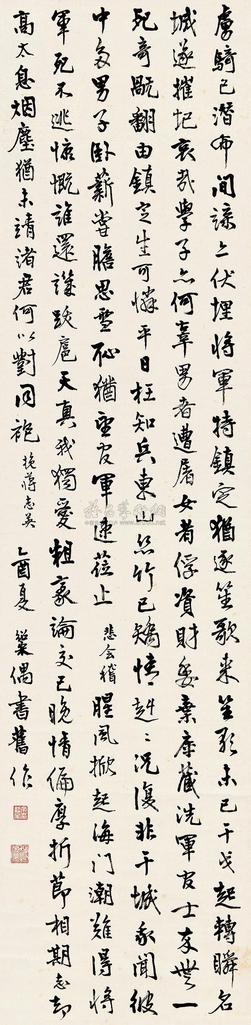 虜騎已潛布間諜上伏埋將軍特鎮定猶逐笙歌來笙歌未已干戈起轉瞬名
城遂摧圮哀哉學子亦何辜男者遭屠女者俘資財委棄庫藏洗軍官士卒無一
死奇翻由鎮定生可憐平日枉知兵東山絲竹已矯情赳々況復非干城我聞彼
中多男子臥薪嘗膽思雪恥猶望官軍速蒞止 悲會稽 腥風掀起海門潮難得將
軍死不逃慷慨誰還謀跋扈天真我獨愛粗豪論交已晚情偏厚折節相期志却
高太息烟塵猶未靖諸君何以對同袍 挽蔣志英 乙酉夏 偶書舊作